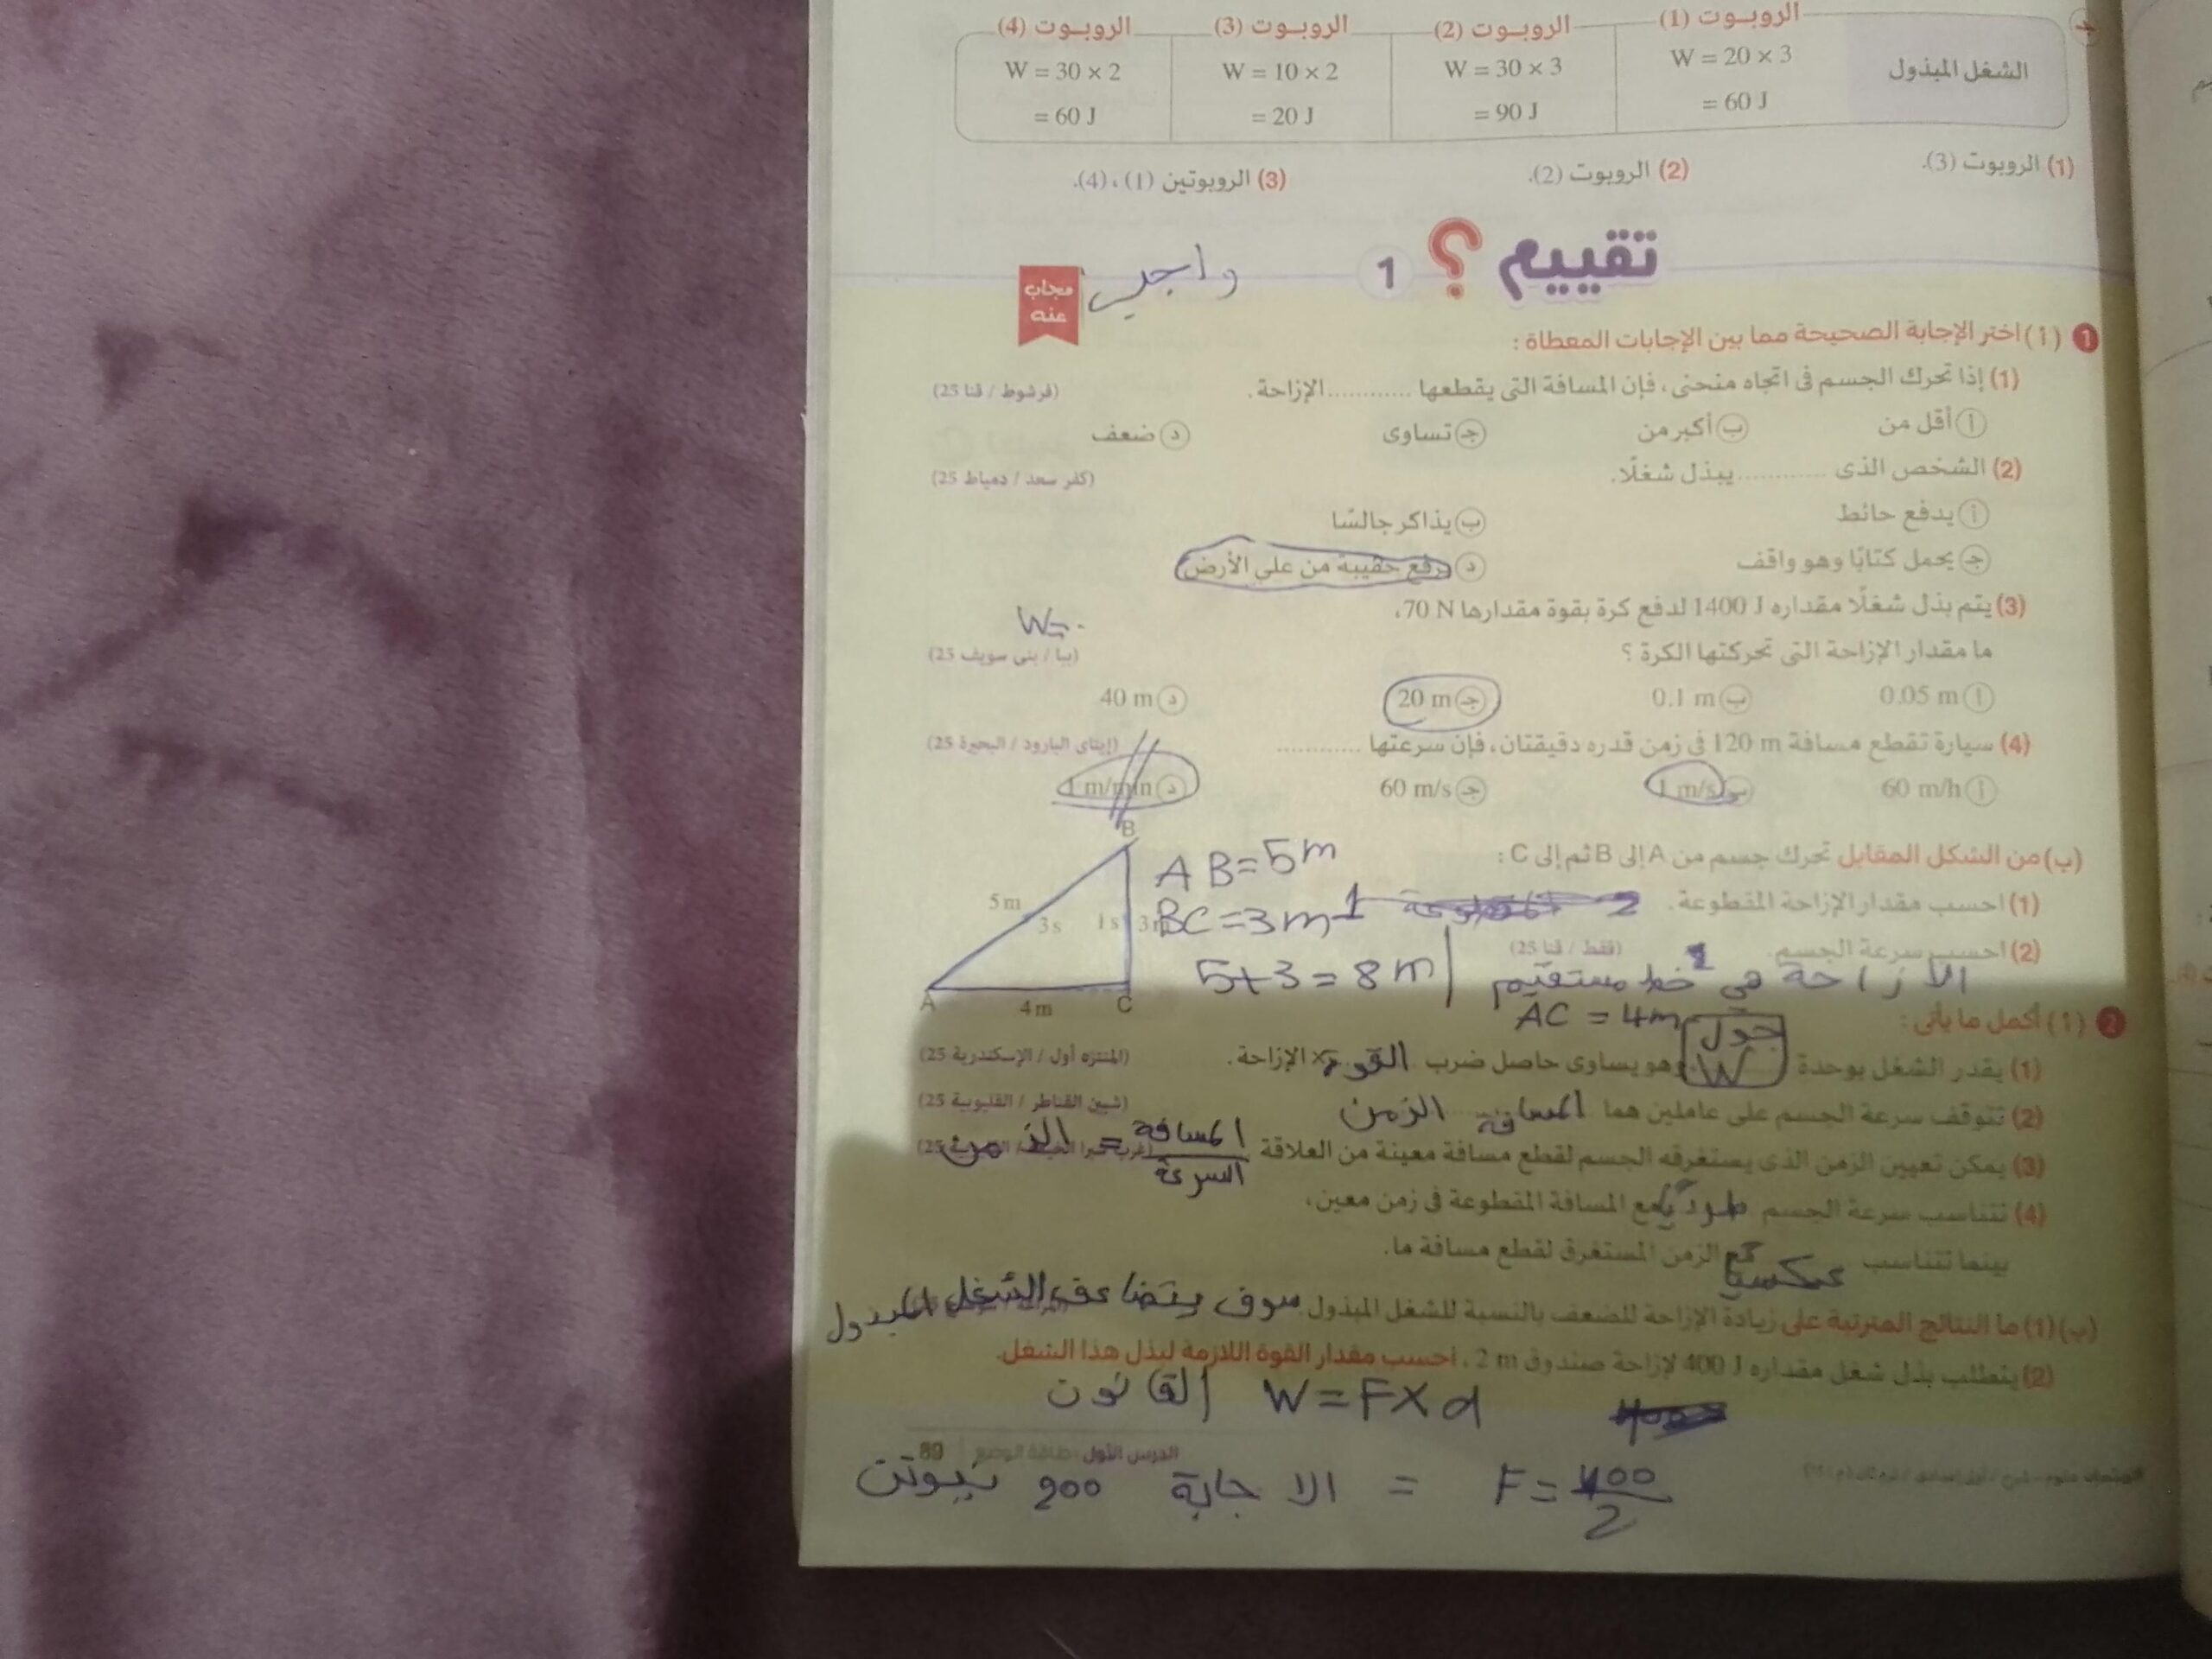 الروبوت (1) الروبوت (2) الروبوت (3) الروبوت (4)
الشغل المبذول W = 20 × 3 W = 30 × 3 W = 10 × 2 W = 30 × 2
= 60 J = 90 J = 20 J = 60 J
(1) الروبوت (3). (2) الروبوت (2). (3) الروبوتين (1) ، (4).
تقييم ؟ 1
مجاب عنه
1 (أ) اختر الإجابة الصحيحة مما بين الإجابات المعطاة :
(1) إذا تحرك الجسم فى اتجاه منحنى، فإن المسافة التى يقطعها ............ الإزاحة. (فرشوط / قنا 25)
أ أقل من ب أكبر من جـ تساوى د ضعف
(2) الشخص الذى ............ يبذل شغلًا. (كفر سعد / دمياط 25)
أ يدفع حائط ب يذاكر جالسًا
جـ يحمل كتابًا وهو واقف د يرفع حقيبة من على الأرض
(3) يتم بذل شغلًا مقداره 1400 J لدفع كرة بقوة مقدارها 70 N،
W=
ما مقدار الإزاحة التى تحركتها الكرة ؟ (ببا / بنى سويف 25)
أ 0.05 m ب 0.1 m جـ 20 m د 40 m
(4) سيارة تقطع مسافة 120 m فى زمن قدره دقيقتان، فإن سرعتها ............ (إيتاى البارود / البحيرة 25)
أ 60 m/h ب 1 m/s جـ 60 m/s د 1 m/min
(ب) من الشكل المقابل تحرك جسم من A إلى B ثم إلى C :
AB=5m
B
5 m 3 s 1 s
A 4 m C
(1) احسب مقدار الإزاحة المقطوعة.
BC=3m
(2) احسب سرعة الجسم. (قفط / قنا 25)
5+3=8m
الازاحة هي خط مستقيم
AC = 4m
2 (أ) أكمل ما يأتى :
(1) يقدر الشغل بوحدة جول W وهو يساوى حاصل ضرب القوة × الإزاحة. (المنتزه أول / الإسكندرية 25)
(2) تتوقف سرعة الجسم على عاملين هما المسافة الزمن (شبين القناطر / القليوبية 25)
(3) يمكن تعيين الزمن الذى يستغرقه الجسم لقطع مسافة معينة من العلاقة المسافة / السرعة = الزمن
(4) تتناسب سرعة الجسم طردياً مع المسافة المقطوعة فى زمن معين،
بينما تتناسب عكسياً مع الزمن المستغرق لقطع مسافة ما.
(ب) (1) ما النتائج المترتبة على زيادة الإزاحة للضعف بالنسبة للشغل المبذول سوف يتضاعف الشغل المبدول
(2) يتطلب بذل شغل مقداره 400 J لإزاحة صندوق 2 m ، احسب مقدار القوة اللازمة لبذل هذا الشغل.
W=F×d القانون
الدرس الأول : طاقة الوضع 89
F= 400/2 = الاجابة 200 نيوتن